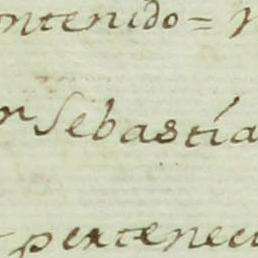 ontenido =
n Sebastía
pertenec